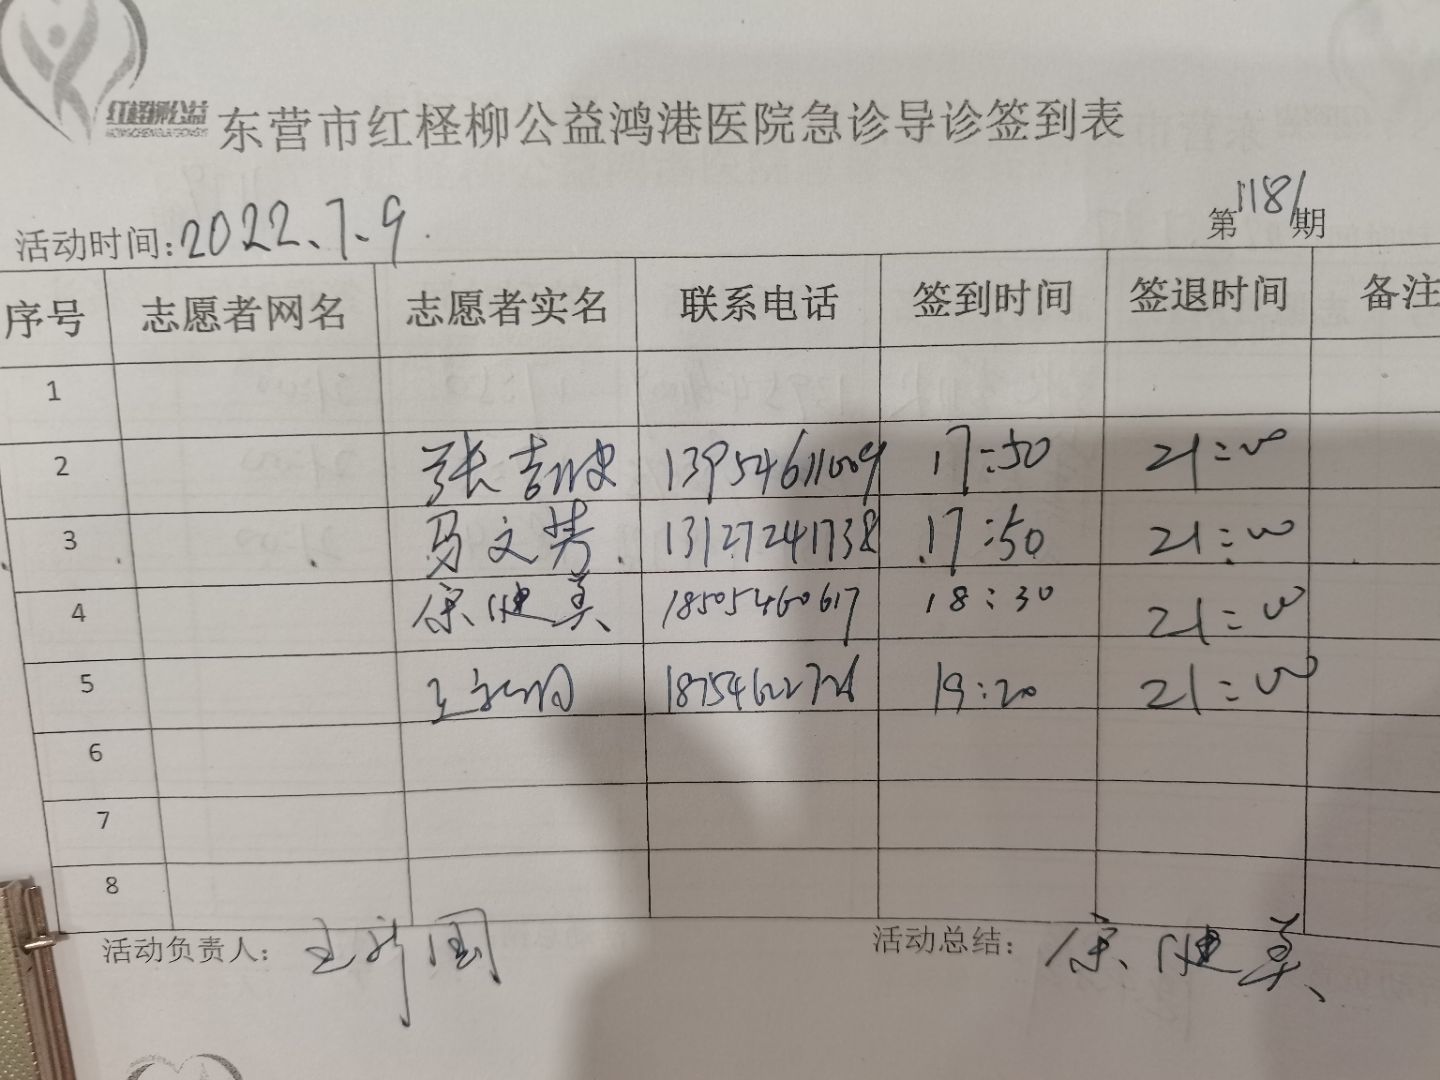 红柽柳公益
东营市红柽柳公益鸿港医院急诊导诊签到表
活动时间:2022.7.9.
第1181期
序号 志愿者网名 志愿者实名 联系电话 签到时间 签退时间 备注
1
2 张吉 13954611009 17:50 21:00
3 马文芳 13127241738 17:50 21:00
4 健美 18505460617 18:30 21:00
5 王 18754622726 19:20 21:00
6
7
8
活动负责人: 王新国
活动总结: 健美